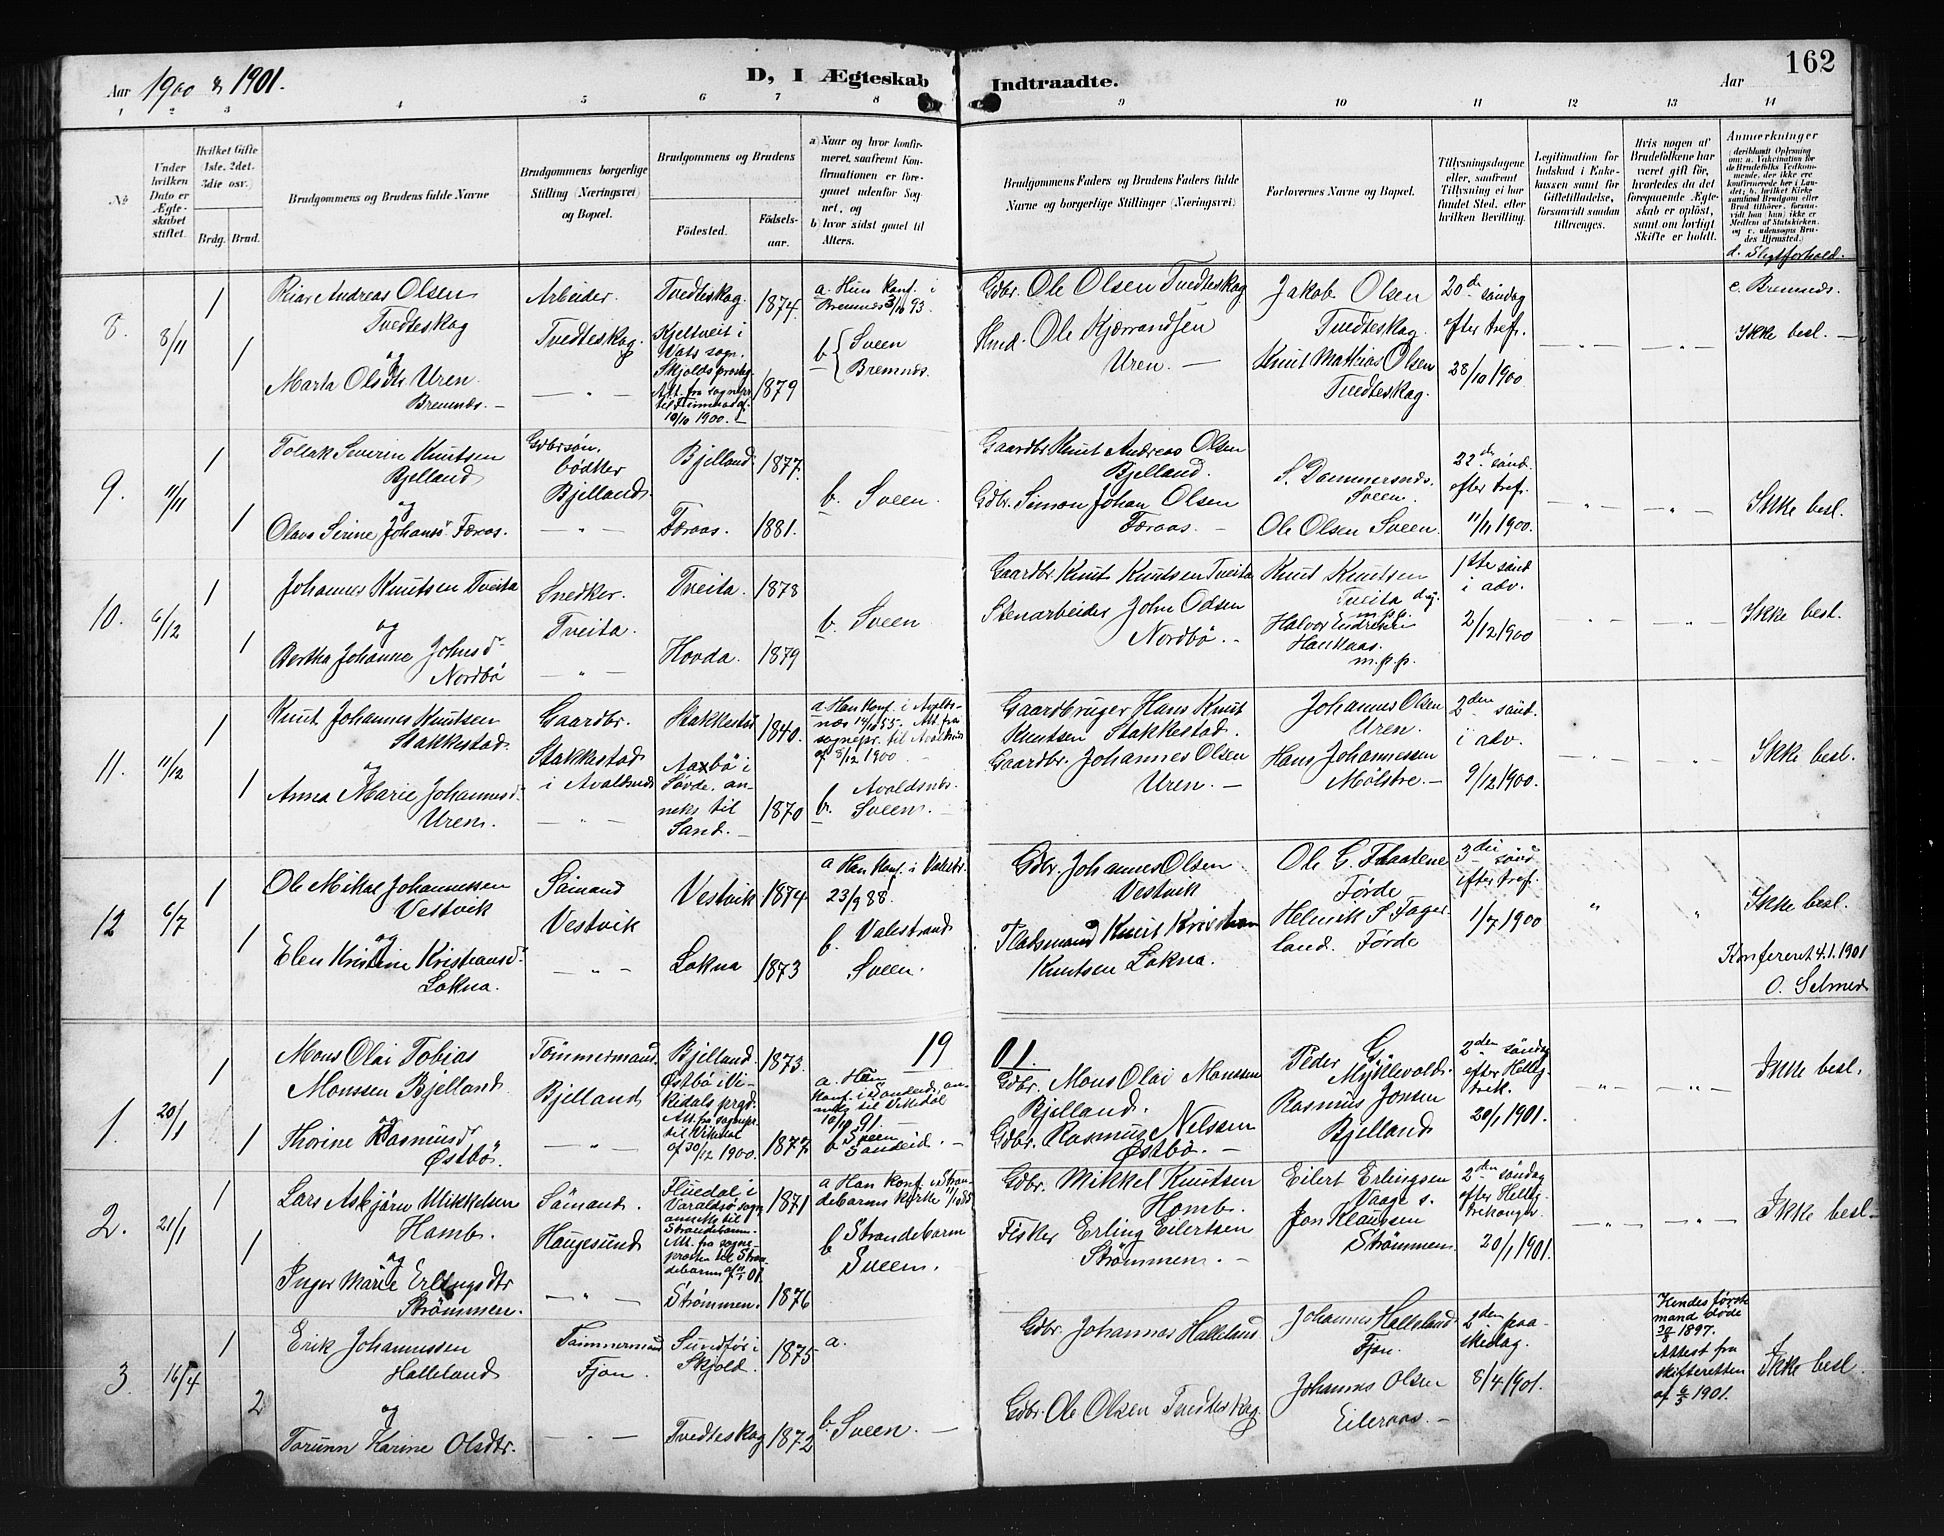 Aar 1900 & 1901.
D, I Ægteskab Indtraadte.
Aar
162
1 2 3 4 5 6 7 8 9 10 11 12 13 14
No
Under hvilken Dato er Ægteskabet stiftet.
Hvilket Gifte 1ste, 2det, 3die osv.
Brdg. Brud.
Brudgommens og Brudens fulde Navne
Brudgommens borgerlige Stilling (Næringsvei) og Bopæl.
Brudgommens og Brudens
Födested.
Födselsaar.
a) Naar og hvor konfirmeret, saafremt Konfirmationen er foregaaet udenfor Sognet, og
b) hvor sidst gaaet til Alters.
Brudgommens Faders og Brudens Faders fulde Navne og borgerlige Stillinger (Næringsvei)
Forlovernes Navne og Bopæl.
Tillysningsdagene eller, saafremt Tillysning ei har fundet Sted, efter hvilken Bevilling.
Legitimation for Indskud i Enkekassen samt for Giftetilladelse, forsaavidt saadan tiltrænges.
Hvis nogen af Brudefolkene har været gift før, hvorledes da det foregaaende Ægteskab er oplöst, samt om lovligt Skifte er holdt.
Anmerkninger
(deriblandt Oplysning om: a. Vakcination for de Brudefolks Vedkommende, der ikke ere konfirmerede her i Landet; b. hvilket Kirkesamfund Brudgom eller Brud tilhörer, forsaavidt han (hun) ikke er Medlem af Statskirken, og c. udensogns Brudes Hjemsted.)
d. Slegtsforhold.
8. 8/11 1 1
Andreas Olsen
Tvedteskog
og
Marta Olsdtr Uren
Bremnes. —
Arbeider.
Tvedteskog.
— " —
Tvedteskog. 1874.
Kjeltveit i
Vats sogn.
Skjolds prstg.
10/10 1900. — 1879
a. Hun Konf. i
Bremnes 3/10 93.
b { Sveen
Bremnes.
Gdbr. Ole Olsen Tvedteskog
Ole Kjærrandsen
Uren. —
Jakob Olsen
Tvedteskog.
Knut Mathias Olsen
Tvedteskog.
20de söndag
efter tref.
28/10 1900.
— " — — " —
c. Bremnes.
Ikke besl. —
9. 11/11 1 1
Tollak Severin Knutsen
Bjelland
og
Olava Serine Johans Færaas.
Gdbrsön,
bödker
Bjelland.
— " —
Bjelland 1877.
Færaas. 1881.
b. Sveen.
Gaardbr Knut Andreas Olsen
Bjelland.
Gdbr. Simon Johan Olsen
Færaas. —
S. Dommersnes.
Sveen.
Ole Olsen Sveen.
22de sönd.
efter tref.
11/11 1900.
— " — — " —
Ikke besl.
10. 6/12 1 1
Johannes Knutsen Tveita
og
Bertha Johanne Johnsd
Nordbö
Snedker.
Tveita.
— " —
Tveita. 1878
Hovda. 1879
b. Sveen
Gaardbr Knut Knutsen Tveita
Stenarbeider John Odsen
Nordbö. —
Knut Knutsen
Tveita
m.p.p.
Halvor Endresen
Haukaas.
m.p.p.
1ste sönd
i adv.
2/12 1900
— " — — " —
Ikke besl.
11. 11/12 1 1
Knut Johannes Knutsen
Stakkestad.
og
Anna Marie Johannesd
Uren.
Gaardbr.
Stakkestad
i Avaldsnes
— " —
Stakkestad 1840.
Aaxbö i
Søvde, anneks
til
Sand. — 1870
a Han Konf. i Avaldsnes
14/10 55. Att. fra
sognepr. til Avaldsnes
af 8/12 1900
b. Avaldsnes.
Sveen. —
Gaardbruger Hans Knut
Knutsen Stakkestad.
Gaardbr. Johannes Olsen
Uren. —
Johannes Olsen
Uren.
Hans Johannessen
Mölstre. —
2den sönd.
i adv.
9/12 1900.
— " — — " —
Ikke besl.
12 6/7 1 1
Ole Mikal Johannessen
Vestvik
og
Elen Kristine Kristiansd.
Lokna.
Sömand
Vestvik
— " —
Vestvik 1874.
Lokna 1873
a Han Konf. i Valestr.
23/9 88.
b. Valestrand
Sveen.
Gdbr. Johannes Olsen
Vestvik
Pladsmand Knut Kristian
Knutsen Lokna.
Ole G. Flaatene
Førde
Helmik S Fagerland.
Førde
3die sönd
efter tref.
1/7 1900
" "
Ikke besl.
Konfereret 4.1.1901
O. Selmer
1901.
1. 20/1 1 1
Mons Olai Tobias
Monssen Bjelland
og
Thorine Rasmusd
Østbö.
Tömmermand.
Bjelland
— " —
Bjelland. 1873.
Østbö i Vikedals
prgd.
Att. fra sognepr.
til Vikedal
af 30/12 1900. 1877
a. Han
Konf. i Sandeid, anneks
til Vikedal
91. —
b Sveen
Sandeid. —
Gdbr. Mons Olai Monssen
Bjelland.
Gdbr. Rasmus Nelssen
Østbö. —
Peder G
Myklevold.
Rasmus Jonsen
Bjelland
2den söndag
efter Hellig
trek.
20/1 1901.
— " — — " —
Ikke besl.
2. 21/1 1 1
Lars Askjörn Mikkelsen
Hamb.
og
Inger Marie Erlingsdtr
Strömmen.
Sömand.
Haugesund
— " —
Fluedal i
Varaldsö sogn
anneks til
Strandebarm.
Att. fra sogneprosten
til Strandebarm 1871
Strömmen. 1876
a Han konf. i Strandebarms
kirke
b Strandebarm
Sveen. —
Gdbr. Mikkel Knutsen
Hamb.
Fisker Erling Eilertsen
Strömmen. —
Eilert Erlingsen
Vaage s.
Jon Klaussen
Strömmen.
2den söndag
efter Hellig
trekonger.
20/1 1901.
— " — — " —
Ikke besl —
3. 16/4 1 2
Erik Johannessen
Halleland
og
Torunn Karine Olsdtr.
Tömmermand
Fjon.
— " —
Sundför i
Skjold. 1875
Tvedteskog 1872
a.
b. Sveen. —
Gdbr Johannes Halleland
Gdbr. Ole Olsen Tvedteskog
Johannes Halleland
Fjon.
Johannes Olsen
Eileraas. —
2den paaskedag.
8/4 1901.
Hendes første
mand døde
1897.
Attest fra
skifteretten
af 6/3 1901.
Ikke besl.